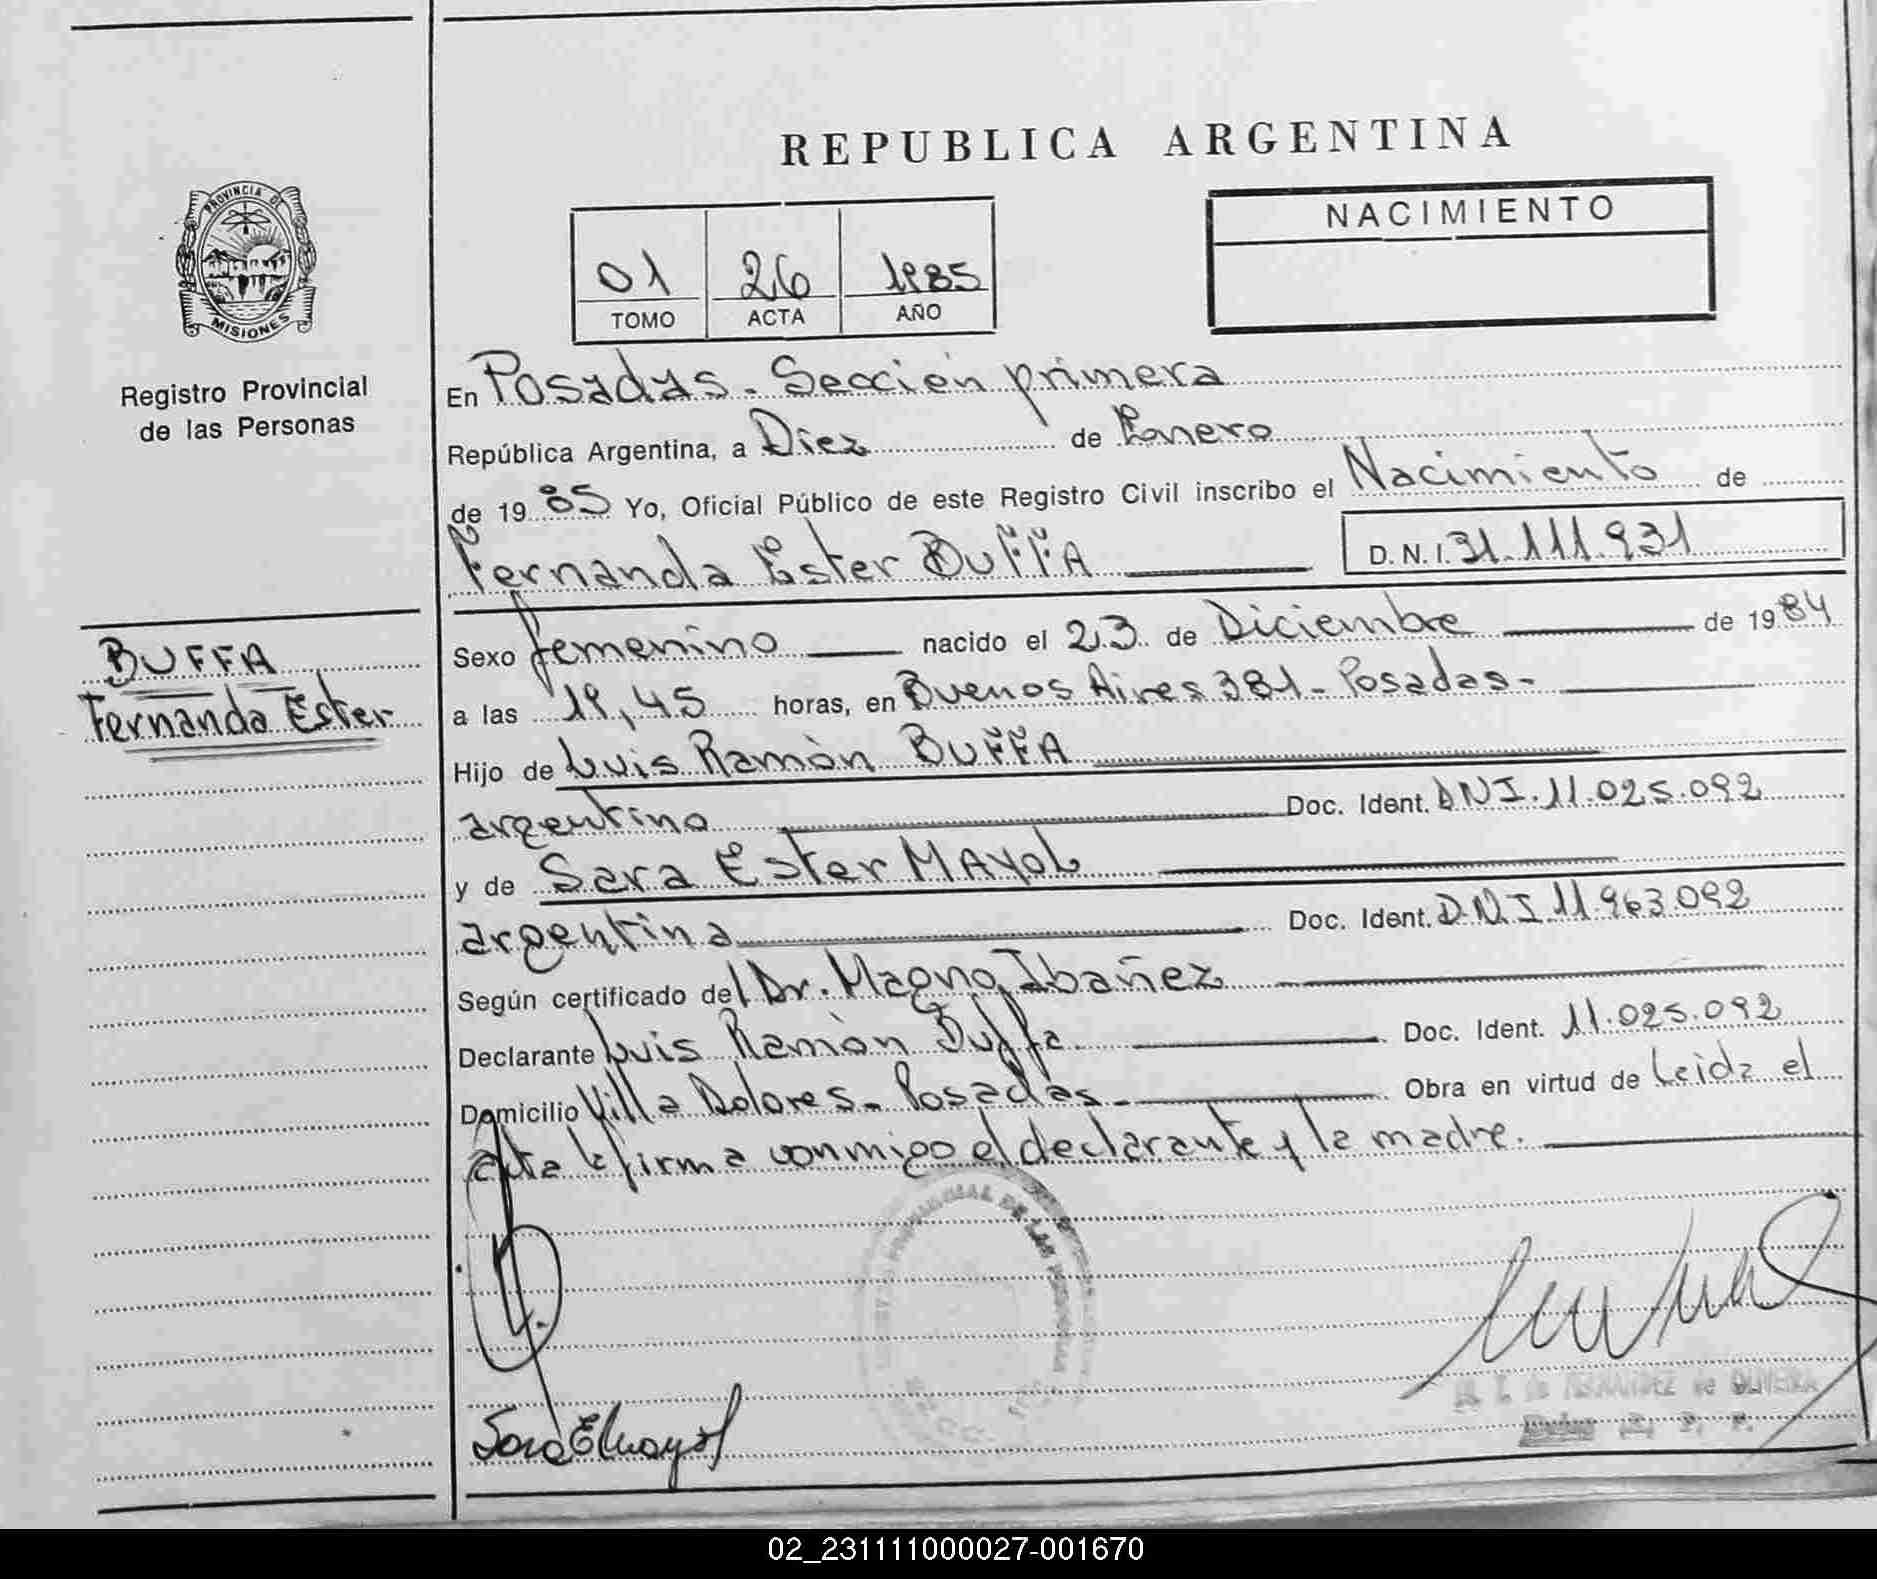 REPUBLICA ARGENTINA
PROVINCIA DE
MISIONES
Registro Provincial
de las Personas
01 26 1985
TOMO ACTA AÑO
NACIMIENTO
En Posadas - Sección primera
República Argentina, a Diez de Enero
de 1985 Yo, Oficial Público de este Registro Civil inscribo el Nacimiento de
Fernanda Ester BUFFA D.N.I. 31.111.931
BUFFA
Fernanda Ester
Sexo femenino nacido el 23 de Diciembre de 1984
a las 19,45 horas, en Buenos Aires 381 - Posadas -
Hijo de Luis Ramón BUFFA
argentino Doc. Ident. DNI. 11.025.092
y de Sara Ester MAYOL
argentina Doc. Ident. D.N.I 11.963.092
Según certificado del Dr. Magno Ibañez
Declarante Luis Ramón Buffa Doc. Ident. 11.025.092
Domicilio Villa Dolores - Posadas - Obra en virtud de Leida el
acta la firma conmigo el declarante y la madre.
PROVINCIAL DE LAS PERSONAS
Sara E Mayol
FERNANDEZ de OLIVEIRA
02_231111000027-001670